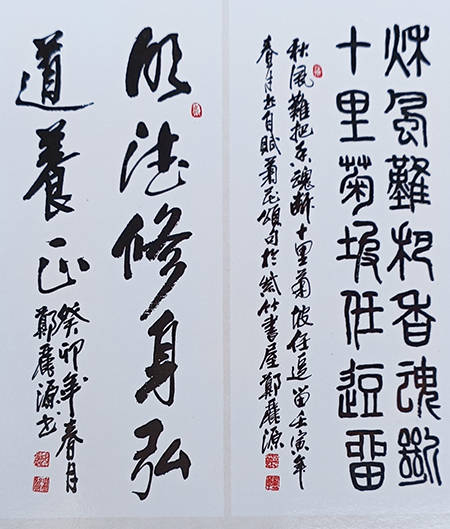 秋風難把香魂斷
十里菊坡任逗留
秋風難把香魂斷十里菊坡任逗留壬寅年
春月书自賦菊花頌句於紫竹書屋鄭麗源
明德修身弘
道養正
癸卯年春月
鄭麗源书